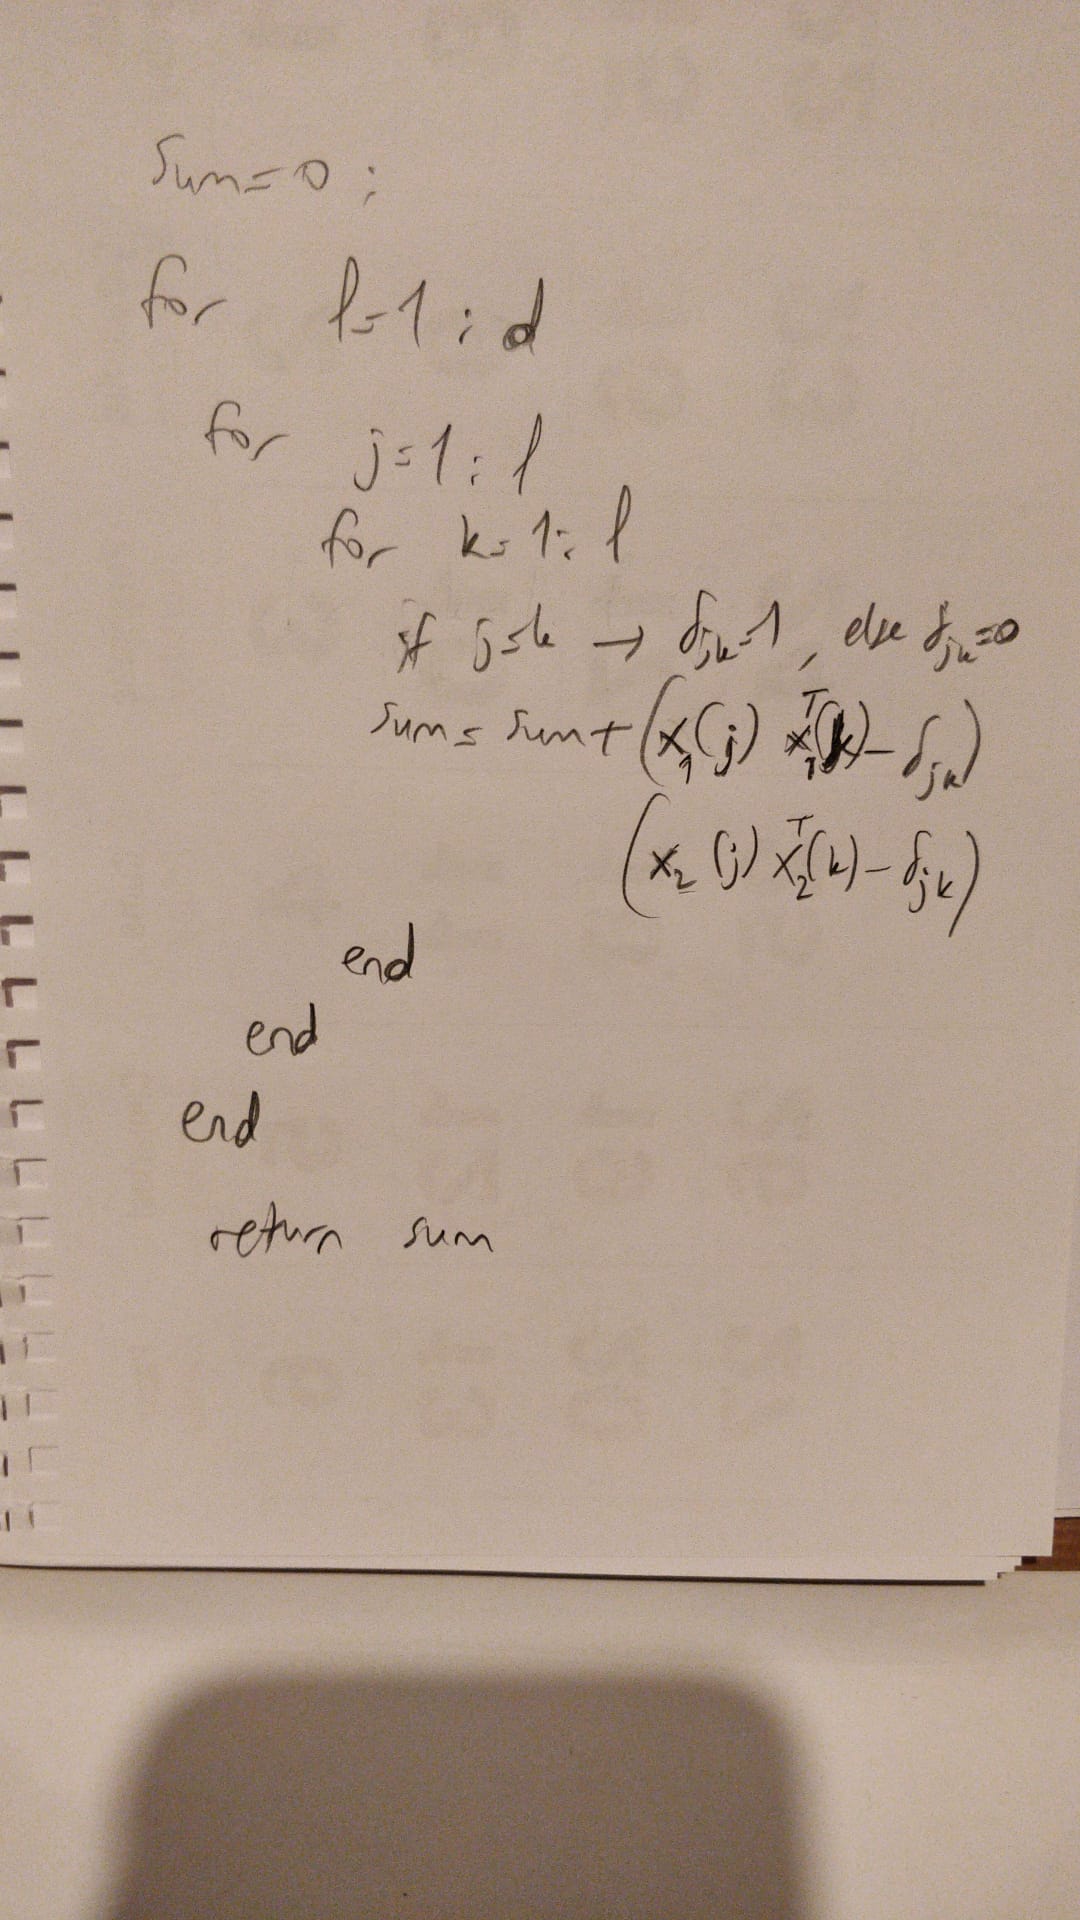 sum=0;
for l=1:d
for j=1:l
for k=1:l
if j=k → δjk=1, else δjk=0
sum= sum+(x₁(j) x₁ᵀ(k)-δjk)
(x₂(j) x₂ᵀ(k)-δjk)
end
end
end
return sum